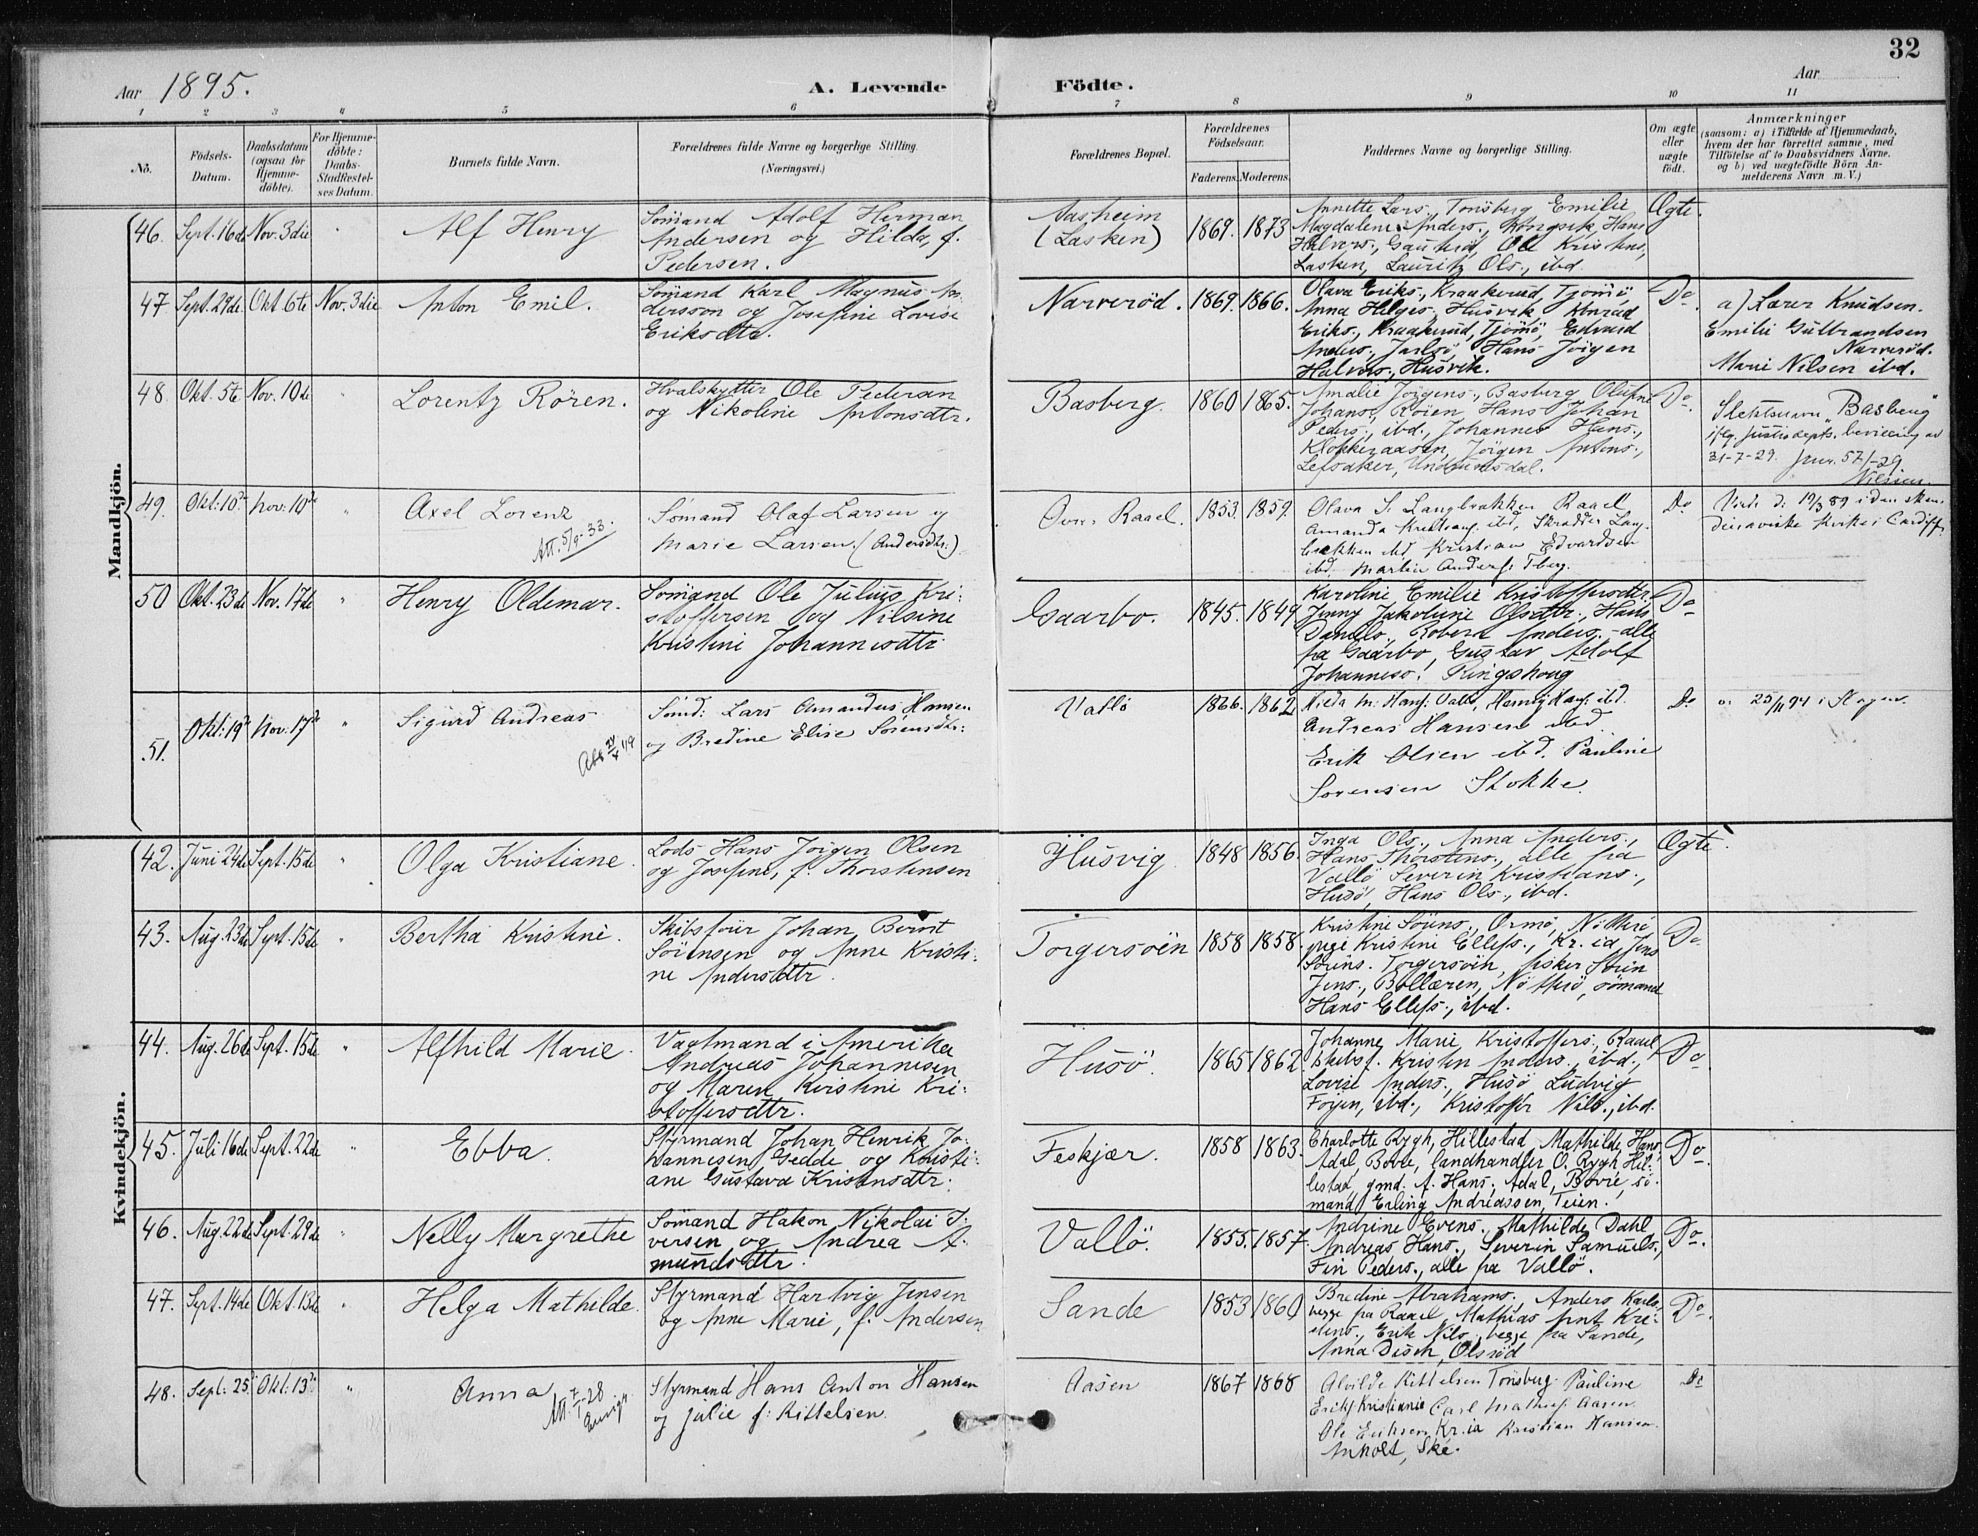 32
Aar 1895.
A. Levende
Födte.
Aar
1 2 3 4 5 6 7 8 9 10 11
No.
Födsels-
Datum.
Daabsdatum
(ogsaa for
Hjemme-
döbte).
For Hjemme-
döbte:
Daabs-
Stadfæstel-
ses Datum.
Barnets fulde Navn.
Forældrenes fulde Navne og borgerlige Stilling.
(Næringsvei.)
Forældrenes Bopæl.
Forældrenes
Födselsaar.
Faderens. Moderens.
Faddernes Navne og borgerlige Stilling.
Om ægte
eller
uægte
födt.
Anmærkninger
(saasom: a) i Tilfælde af Hjemmedaab,
hvem der har forrettet samme, med
Tilföielse af to Daabsvidners Navne,
og b) ved uægtefödte Börn An-
melderens Navn m. V.)
Mandkjön.
46. Sept. 16de Nov. 3die " Alf Henry
Sömand Adolf Herman
Andersen og Hilda, f.
Pedersen.
Aasheim
(Lasken)
1869. 1873
Annette Lars. Tönsberg Emilie
Magdalene Anders., Hans
Halvors., Ole Kristens,
Lasken, Lauritz Ols., ibd.
Ægte.
47 Sept. 29de Okt. 6te Nov. 3die Anton Emil.
Sömand Karl Magnus An-
dersson og Josefine Lovise
Eriksdtr.
Narveröd. 1869. 1866.
Olava Eriks., Kraakerud, Tjömö,
Anna Helges., Husvik, Konrad
Eriks., Kraakerud, Tjömö, Edvard
Anders. Jarlsö, Hans Jörgen
Halvors., Husvik.
Do.
a) Lærer Knudsen.
Emilie Gulbrandsen
Narveröd.
Marie Nilsen ibd.
48. Okt. 5te Nov. 10de " Lorentz Rören.
Hvalskytter Ole Pedersen
og Nikoline Antonsdtr.
Basberg. 1860 1865.
Amalie Jörgens., Basberg, Olufine
Johans., Röien, Hans Johan
Peders., ibd., Johannes Hans.,
Klopperaasen, Jörgen Antons.,
Lefsaker, Undrumsdal.
Do.
Slektsnavn "Basberg"
iflg. Justisdepts. bevilling av
31-7-29. jnr. 57/-29
Nilsen.
49. Okt: 10de Nov: 10de " Axel Lorenz
Att. 5/9-33.
Sömand Olaf Larsen og
Marie Larsen (Andersdtr:)
Övre Raael. 1853. 1859.
Olava S. Langbrekken Raael
Amanda Kristians. ibd, Skrædder Lang-
brekken ibd Kristian Edvardsen
ibd. Martin Anders. Tberg.
Do
Viede d: 19/3 89 i den skan-
dinaviske Kirke i Cardiff.
50 Okt. 23de Nov. 17de " Henry Oldemar.
Sömand Ole Julius Kri-
stoffersen og Nilsine
Kristine Johannesdtr.
Gaarbo. 1845. 1849
Karoline Emilie Kristoffersdtr.
Jenny Jakobine Olsdtr., Hans
Daniels., Robert Anders. - alle
fra Gaarbo, Gustav Adolf
Johanness. Ringshoug
Do
51. Okt: 19de Nov: 17de " Sigurd Andreas
Sömd: Lars Amandus Hansen
og Bredine Elise Sörensdtr:
Vallö 1866. 1862
Hilda M. Hans. Vallö, Henny Hans. ibd.
Andreas Hansen ibd
Erik Olsen ibd. Pauline
Sörensen Stokke.
Do
v. 25/11 94 i Slagen.
Kvindekjön.
42. Juni 24de Sept. 15de " Olga Kristiane.
Lods Hans Jörgen Olsen
og Josefine, f. Thorstensen
Husvig. 1848 1856.
Inga Ols., Anna Anders.,
Hans Thorstens., alle fra
Vallö Severin Kristians.,
Husö, Hans Ols., ibd.
Ægte.
43. Aug. 23de Sept. 15de " Bertha Kristine.
Skibsförer Johan Bernt
Sörensen og Anne Kristi-
ne Andersdtr.
Torgersöen 1858 1858.
Kristine Sörens., Ormö, Nötterö
pige Kristine Ellefs., Kr.ia, Jens
Sörens. Torgersöen, fisker Sören
Jens., Bollæren, Nötterö, sömand
Hans Ellefs., ibd.
Do
44. Aug. 26de Sept. 15de " Alfhild Marie.
Vagtmand i Amerika
Andreas Johannesen
og Maren Kristine Kri-
stoffersdtr.
Husö. 1865 1862
Johanne Marie Kristoffers., Raael
Skibsf. Kristen Anders., ibd.,
Lovise Anders., Husö Ludvig
Föyen, ibd., Kristoffer Nils., ibd.
Do
45. Juli 16de Sept. 22de " Ebba.
Styrmand Johan Henrik Jo-
hannesen Gedde og Kristi-
ane Gustava Kristensdtr.
Feskjær. 1858 1863.
Charlotte Rygh, Hillestad, Mathilde Hans.
Adal, Borre, landhandler O. Rygh Hil-
lestad, gmd. A. Hans., Adal, Borre, sö-
mand Erling Andreassen, Teien.
Do.
46. Aug. 22de Sept. 29de " Nelly Margrethe
Sömand Hakon Nikolai I-
versen og Andrea A-
mundsdtr.
Vallö. 1855. 1857
Andrine Evens., Mathilde Dahl
Andreas Hans., Severin Samuels.,
Finn Peders., alle fra Vallö.
Do.
47. Sept. 14de Okt. 13de " Helga Mathilde.
Styrmand Hartvig Jensen
og Anne Marie, f. Andersen
Sande 1853 1860
Bredine Abrahams., Anders Karls.,
begge fra Raael, Mathias Ant. Kri-
stens., Erik Nils., begge fra Sande,
Anna Disch, Olsröd
Do.
48. Sept: 25. Okt: 13de " Anna
Att. 7/1-28
Styrmand Hans Anton Hansen
og Julie f: Kittelsen.
Aasen 1867 1868
Alvilde Kittelsen Tönsberg. Pauline
Eriks. Kristiania Carl Mathis. Aasen
Ole Eriksen Kr.ia Kristian Hansen
Anholt, Ske.
Do